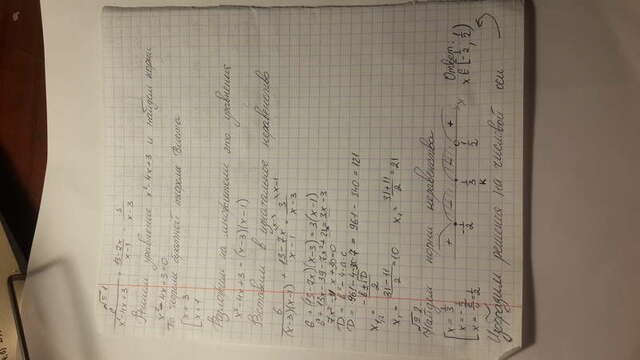 № 1
6/(x²-4x+3) + (13-7x)/(x-1) = 3/(x-3)
Решим уравнение x²-4x+3 и найдем корни
x²-4x+3=0
По теореме обратной теореме Виета
[x = 3
[x = 1
Разложим на множители это уравнения
x²-4x+3 = (x-3)(x-1)
Вставим в изначальное неравенство
6/((x-3)(x-1)) + (13-7x)/(x-1) \x-3 = 3/(x-3) \x-1
6 + (13-7x)(x-3) = 3(x-1)
6 + 13x - 39 - 7x² + 21x = 3x - 3
7x² - 31x + 30 = 0
D = b² - 4·a·c
D = 961 - 4·30·7 = 961 - 840 = 121
x₁,₂ = (-b±√D)/2
x₁ = (31-11)/2 = 10 x₂ = (31+11)/2 = 21
№ 2
Найдем корни неравенства
[x = 1/3
[x = -1/2
[x = 1/2
+ - - + x
-1/2 1/3 1/2
К
Ответ:
x ∈ [-1/2; 1/2)
Изобразим решения на числовой оси